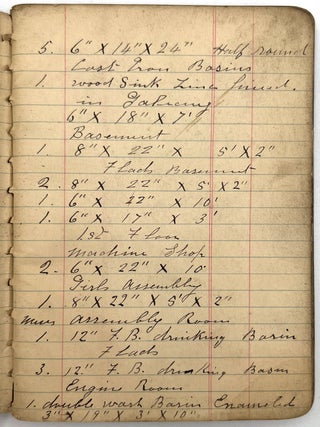 5. 6" X 14" X 24" Half round
Cast Iron Basins
1. wood Sink Zinc lined.
in
6" X 18" X 7'
Basement
1. 8" X 22" X 5' X 2"
Flads Basement
2. 8" X 22" X 5' X 2"
1. 6" X 22" X 10'
1. 6" X 17" X 3'
1st Floor
Machine Shop
2. 6" X 22" X 10'
Girls Assembly
1. 8" X 22" X 5' X 2"
Mens Assembly Room
1. 12" F.B. drinking Basin
Flads
3. 12" F.B. drinking Basin
Engine Room
1. double wash Basin Enameled
3" X 19" X 3' X 10"